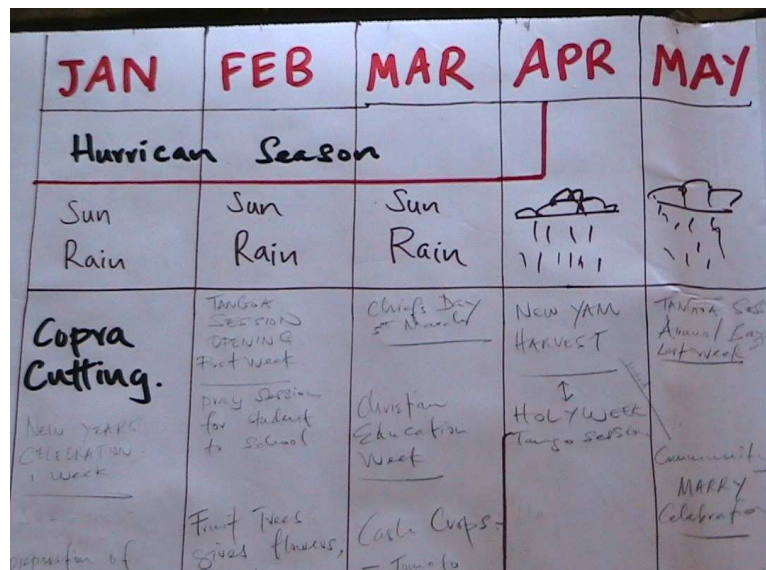 JAN FEB MAR APR MAY
Hurrican Season
Sun
Rain
Sun
Rain
Sun
Rain
Copra
Cutting.
NEW YEARS
CELEBRATION
1 Week
TANGOA
SESSION
OPENING
First Week
Pray Session
for student
to School
Fruit Trees
gives flowers,
Chiefs Day
5th March
Christian
Education
Week
Cash Crops
- Tomato
NEW YAM
HARVEST
HOLY WEEK
Tango Session
TANGOA Ses
Annual
Last Week
MARRY
Celebration